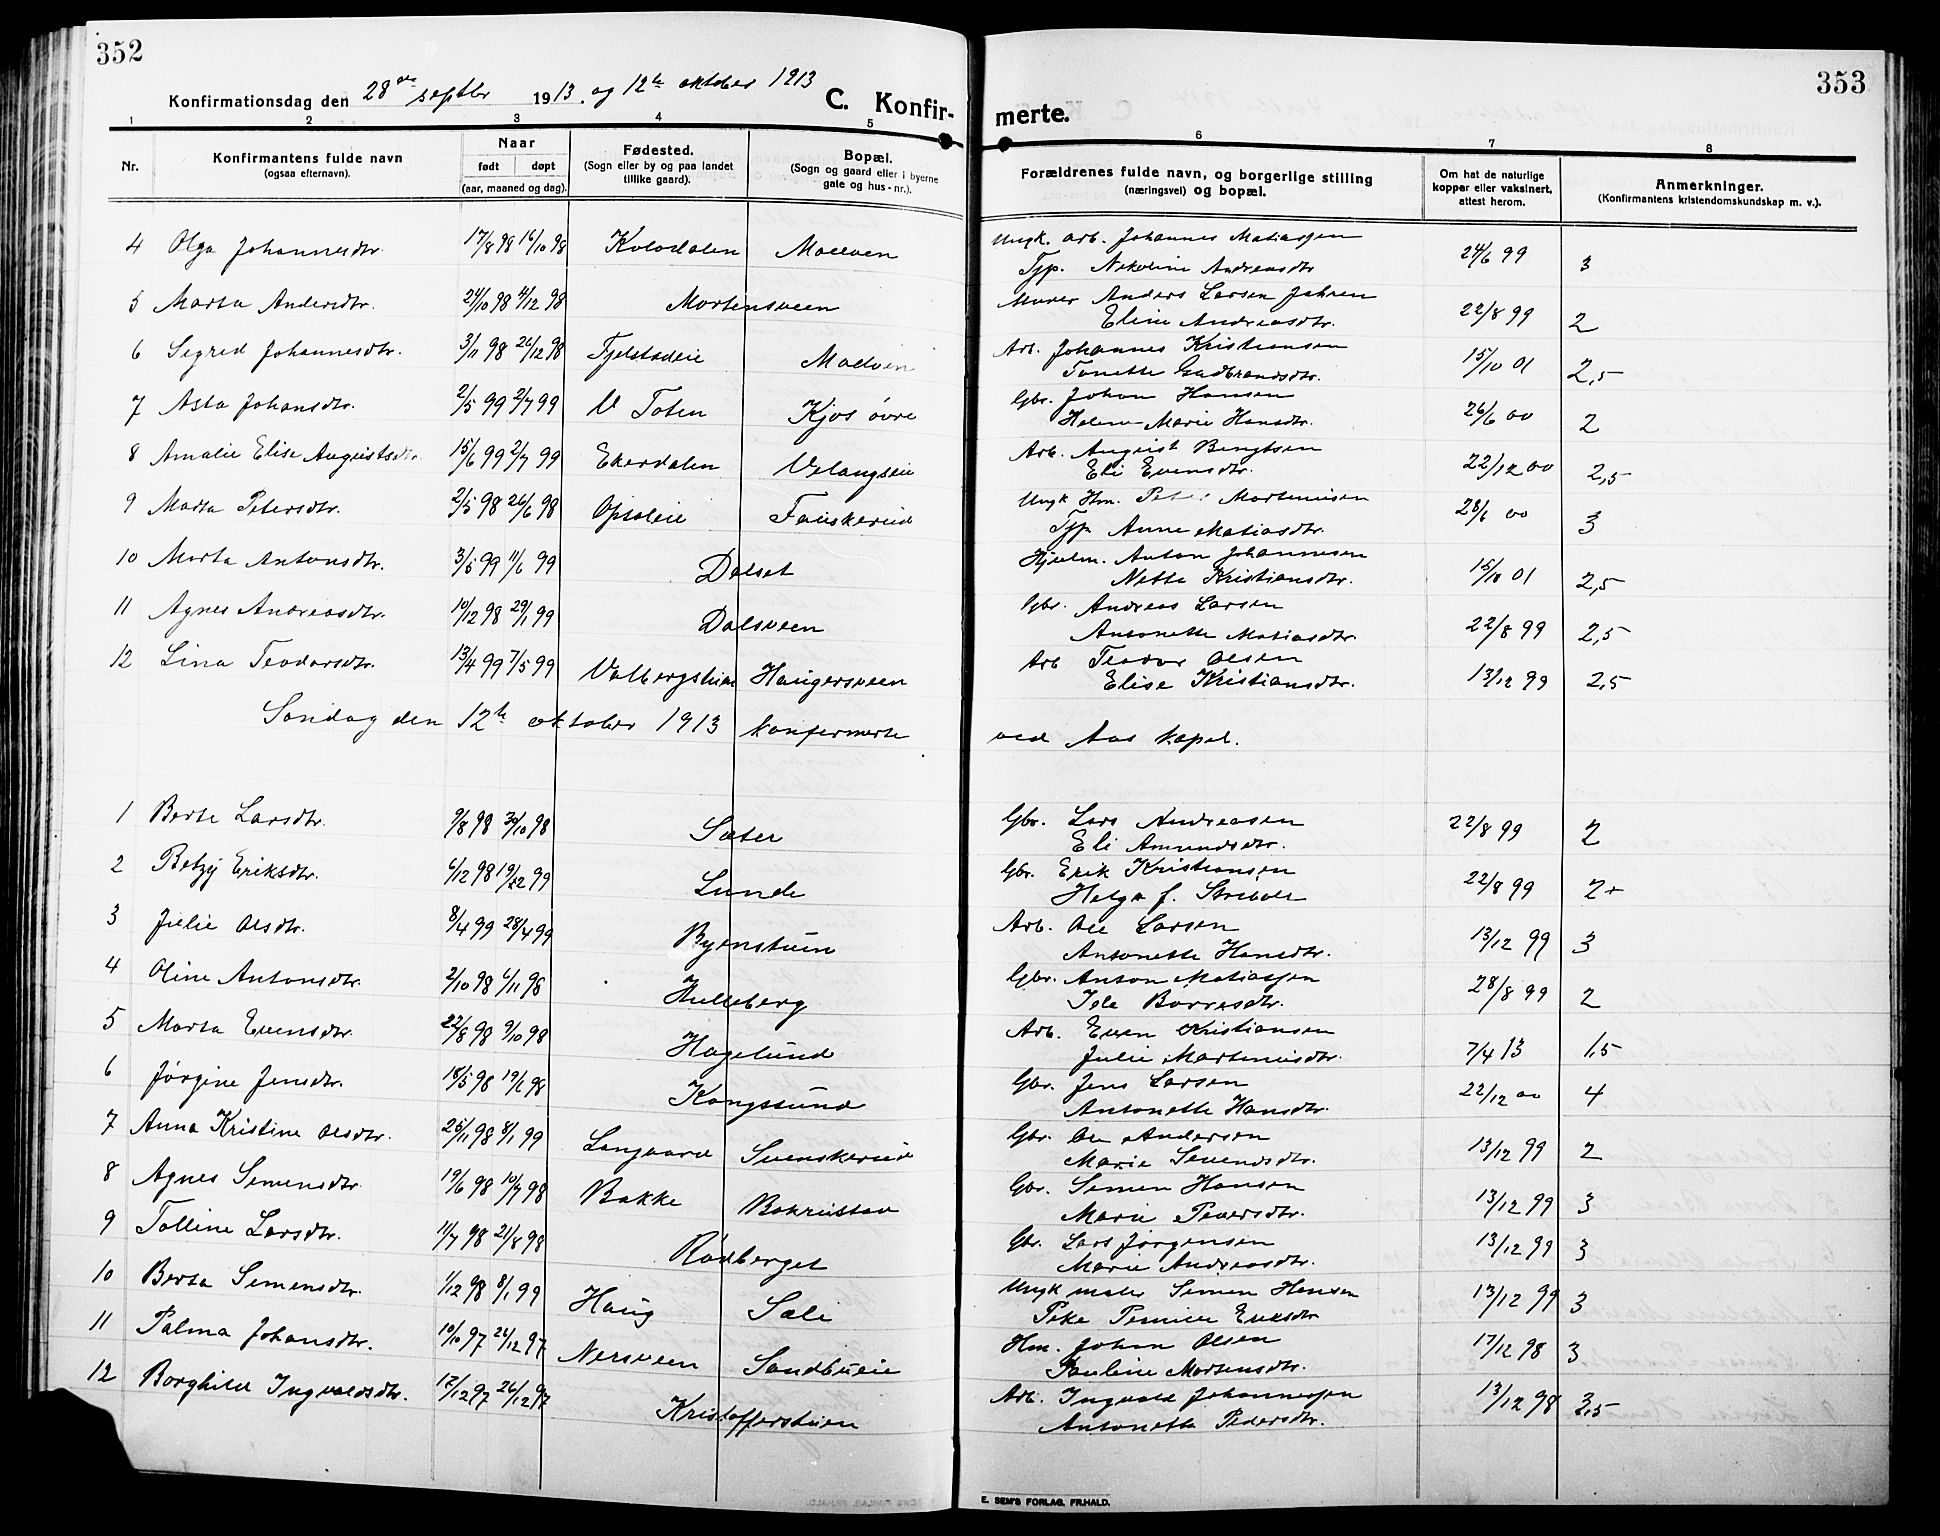 352
353
Konfirmationsdag den 28de septbr 1913. og 12te oktober 1913 C. Konfir- merte.
1 2 3 4 5 6 7 8
Nr. Konfirmantens fulde navn (ogsaa efternavn). Naar født døpt (aar, maaned og dag). Fødested. (Sogn eller by og paa landet tillike gaard). Bopæl. (Sogn og gaard eller i byerne gate og hus-nr.). Forældrenes fulde navn, og borgerlige stilling (næringsvei) og bopæl. Om hat de naturlige kopper eller vaksinert, attest herom. Anmerkninger. (Konfirmantens kristendomskundskap m. v.).
4 Olga Johannesdtr. 17/8 98 16/10 98 Ungk. arb. Johannes Matiassen
Andreasdtr 24/6 99 3
5 Marta Andersdtr. 24/10 98 4/12 98 Mortensveen Murer Anders Larsen Jahren
Eline Andreasdtr. 22/8 99 2
6 Sigred Johannesdtr. 3/11 98 26/12 98 Arb. Johannes Kristiansen
Tonette Gudbrandsdtr. 15/10 01 2,5
7 Asta Johansdtr. 2/5 99 2/7 99 V Toten Kjos øvre Gbr. Johan Hansen
Helene Marie Hansdtr. 26/6 00 2
8 Amalie Elise Augustsdtr. 15/6 99 2/7 99 Ekerdalen Arb. August Bengtsen
Eli Evensdtr. 22/12 00 2,5
9 Marta Petersdtr. 2/5 98 26/6 98 Fauskerud Ungk Hm. Peter Martinusen
Anne Matiasdtr. 28/6 00 3
10 Marta Antonsdtr. 3/5 99 11/6 99 Dalset Anton Johannesen
Netta Kristiansdtr. 15/10 01 2,5
11 Agnes Andreasdtr. 10/12 98 29/1 99 Dalsveen Gbr. Andreas Larsen
Antonette Matiasdtr. 22/8 99 2,5
12 Lina Teodorsdtr. 13/4 99 7/5 99 Haugersveen Arb Teodor Olsen
Elise Kristiansdtr. 13/12 99 2,5
Søndag den 12te oktober 1913 konfermerte ved Aas kapel.
1 Berte Larsdtr. 9/8 98 30/10 98 Sæter Gbr. Lars Andreasen
Eli Amundsdtr. 22/8 99 2
2 Betzy Eriksdtr. 6/12 98 Lunde Gbr. Erik Kristiansen
Helga f. 22/8 99 2+
3 Julie Olsdtr. 8/4 99 28/4 99 Byenstuen Arb. Ole Larsen
Antonette Hansdtr. 13/12 99 3
4 Oline Antonsdtr. 2/10 98 6/11 98 Hulleberg Gbr. Anton Matiassen
Ida Borresdtr. 28/8 99 2
5 Marta Evensdtr. 22/8 98 9/10 98 Hagelund Arb. Even Kristiansen
Julie Martinusdtr. 7/4 13 1,5
6 Jørgine Jensdtr. 18/5 98 19/6 98 Kongssund Gbr. Jens Larsen
Antonette Hansdtr. 22/12 00 4
7 Anna Kristine Olsdtr. 25/11 98 8/1 99 Langaard Svenskerud Gbr. Ole Andersen
Marie Sevendsdtr. 13/12 99 2
8 Agnes Semensdtr. 19/6 98 10/7 98 Bakke Gbr. Semen Hansen
Marie 13/12 99 3
9 Talline Larsdtr. 11/7 98 21/8 98 Rødberget Gbr. Lars Jørgensen
Marie Andreasdtr. 13/12 99 3
10 Berta Semensdtr. 1/12 98 8/1 99 Haug Sæli Ungk maler Semen Hansen
Ericksdtr 13/12 99 3
11 Palma Johansdtr. 10/10 97 26/12 97 Nersveen Sandbueie Hm. Johan Olsen
Pauline Mortensdtr. 17/12 98 3
12 Borghild Ingvaldsdtr. 12/12 97 26/12 97 Kristofferstuen Arb. Ingvald Johannessen
Antonette Pedersdtr. 13/12 98 3,5
E. SEM'S FORLAG, FR.HALD.